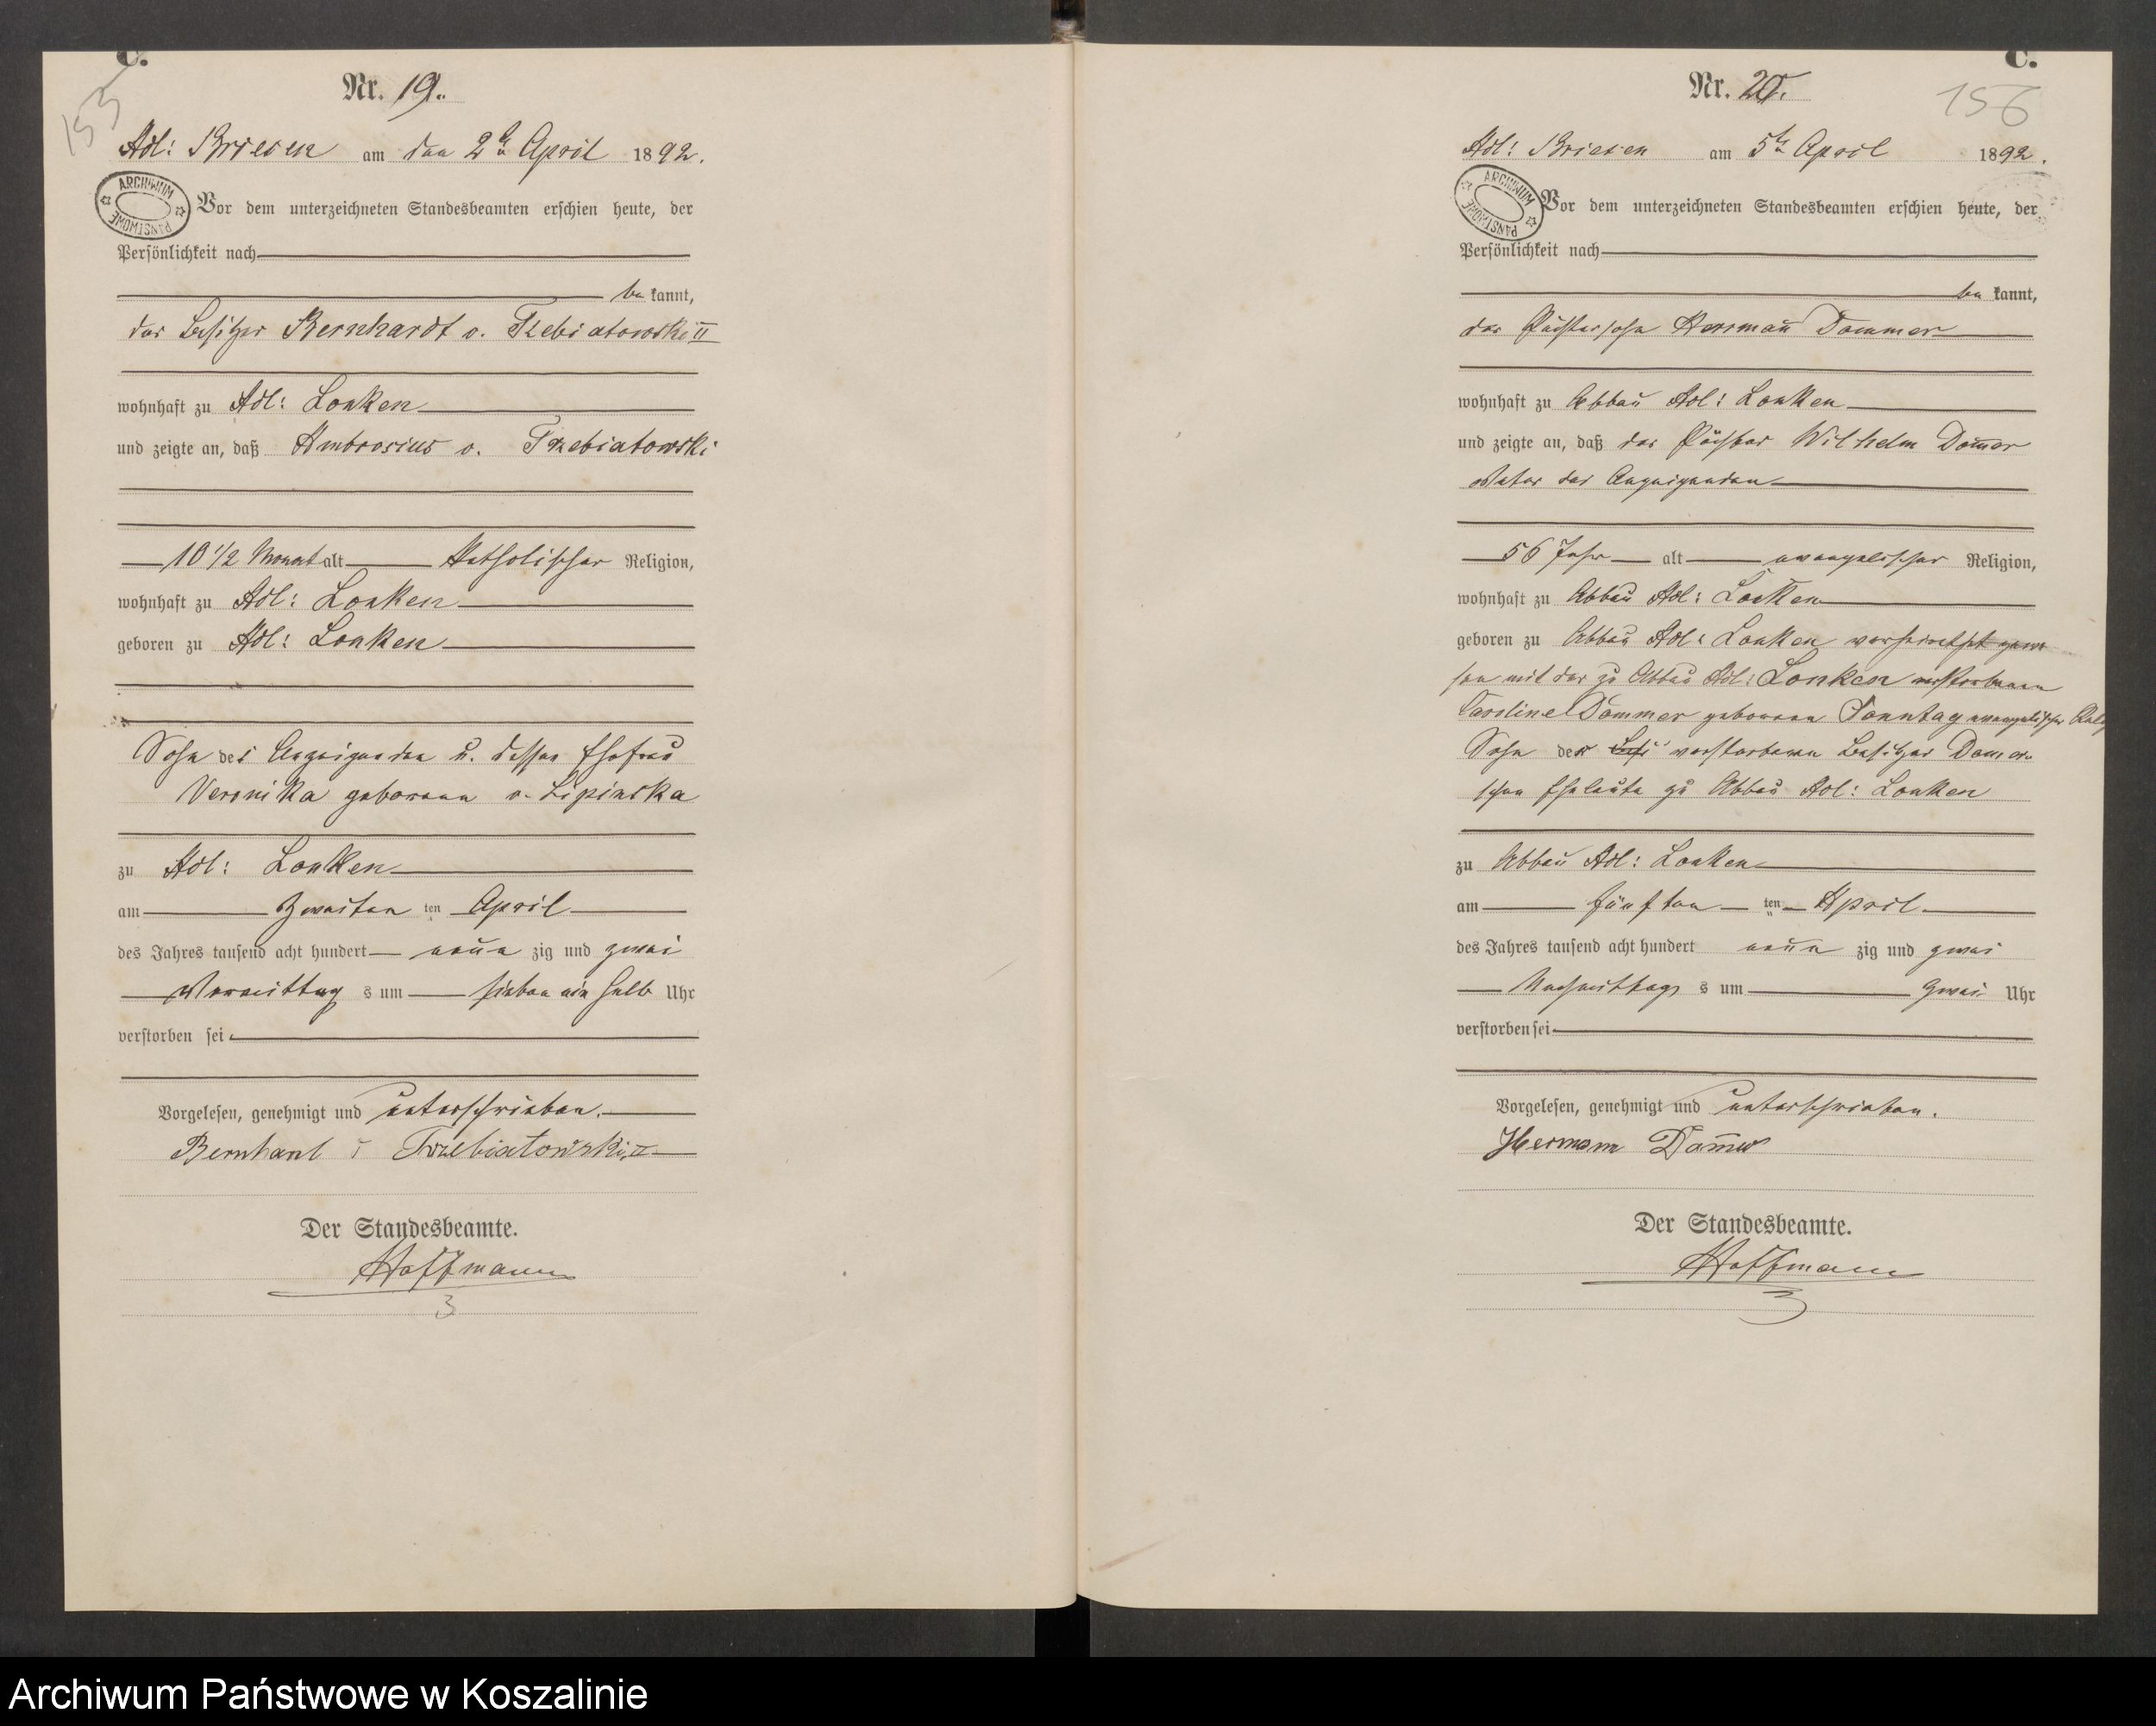 C.
Nr. 19.
155
Adl: Briesen am den 2ten April 1892.
ARCHIWUM PAŃSTWOWE
Vor dem unterzeichneten Standesbeamten erschien heute, der
Persönlichkeit nach
be kannt,
der Besitzer Bernhardt v. Trzebiatowski II
wohnhaft zu Adl: Lonken
und zeigte an, daß Ambrosius v. Trzebiatowski
10 1/2 Monat alt Katholischer Religion,
wohnhaft zu Adl: Lonken
geboren zu Adl: Lonken
Sohn des Anzeigenden u. dessen Ehefrau
Veronika geborenen v. Lipinska
zu Adl: Lonken
am Zweiten ten April
des Jahres tausend acht hundert neun zig und zwei
Vormittag s um sieben ein halb Uhr
verstorben sei
Vorgelesen, genehmigt und unterschrieben.
Bernhard v Trzebiatowski II
Der Standesbeamte.
Hoffmann
C.
Nr. 20.
156
Adl: Briesen am 5ten April 1892.
ARCHIWUM PAŃSTWOWE
Vor dem unterzeichneten Standesbeamten erschien heute, der
Persönlichkeit nach
be kannt,
der Pächtersohn Herrmann Dommer
wohnhaft zu Abbau Adl: Lonken
und zeigte an, daß der Pächter Wilhelm Dom̄er
Vater des Anzeigenden
56 Jahr alt evangelischer Religion,
wohnhaft zu Abbau Adl: Lonken
geboren zu Abbau Adl: Lonken verheirathet gewe
sen mit der zu Abbau Adl: Lonken verstorbenen
Caroline Dommer geborenen Sonntag evangelischer Relig
Sohn der verstorbenen Besitzer Domer
schen Eheleute zu Abbau Adl: Lonken
zu Abbau Adl: Lonken
am fünften ten April
des Jahres tausend acht hundert neun zig und zwei
Nachmittag s um Zwei Uhr
verstorben sei
Vorgelesen, genehmigt und unterschrieben.
Hermann Dom̄er
Der Standesbeamte.
Hoffmann
Archiwum Państwowe w Koszalinie